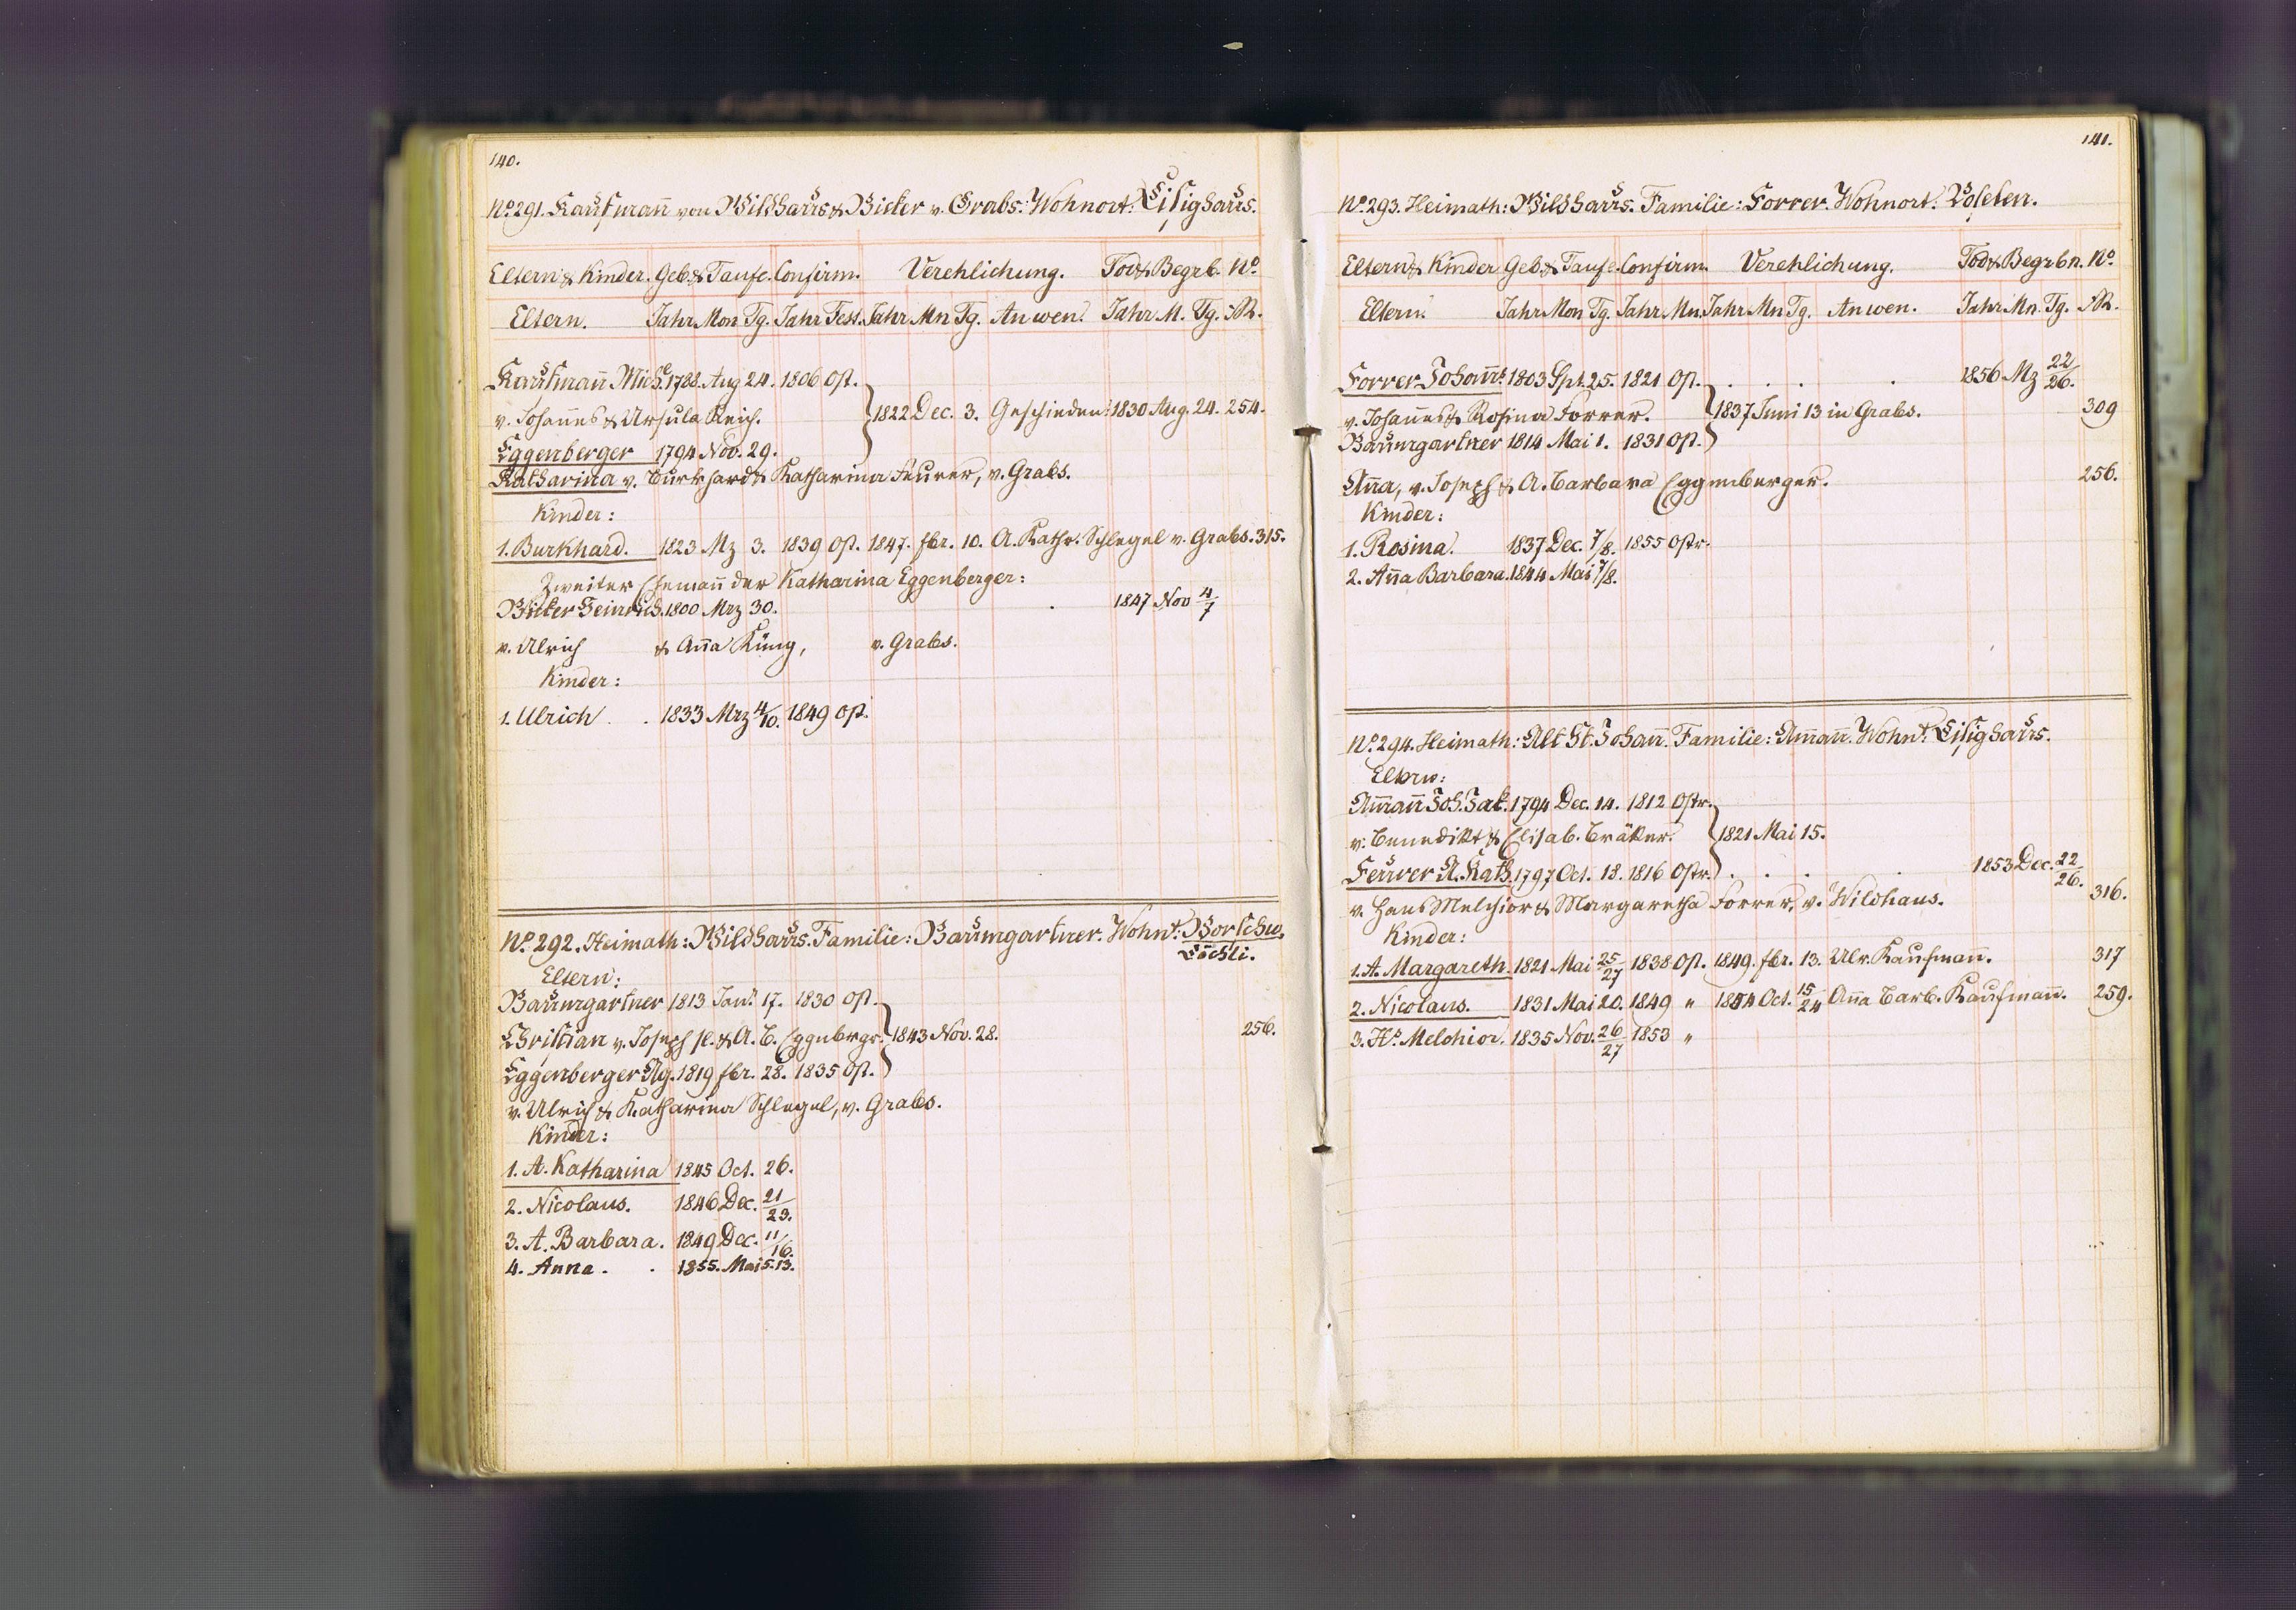 140.
No. 291. Kaufmañ von Wildhaus & Bicker v. Grabs. Wohnort: Lisighaus.
Eltern & Kinder. Geb. & Taufe. Confirm. Verehlichung. Tod & Begrb. No.
Eltern. Jahr Mon Tg. Jahr Fest. Jahr Mn Tg. An wen? Jahr M. Tg. NR.
Kaufmañ Mich. 1788. Aug 24. 1806 Ost.
v. Johañes & Ursula Reich. 1822 Dec. 3. Geschieden: 1830 Aug. 24. 254.
Eggenberger 1794 Nov. 29.
Katharina v. Burkhard & Katharina Feurer, v. Grabs.
Kinder:
1. Burkhard. 1823 Mz 3. 1839 Ost. 1847. fbr. 10. A. Kathr. Schlegel v. Grabs. 315.
Zweiter Ehemañ der Katharina Eggenberger:
Bicker Heinrich. 1800 Mrz 30. . 1847 Nov 4/7
v. Ulrich & Aña Küng, v. Grabs.
Kinder:
1. Ulrich . 1833 Mrz 4/10. 1849 Ost.
No. 292. Heimath: Wildhaus. Familie: Baumgartner. Wohnt: Bortschw.
Löchli.
Eltern:
Baumgartner 1813 Jan. 17. 1830 Ost.
Christian v. Joseph sl. & A. B. Eggnbrgr. 1843 Nov. 28. 256.
Eggenberger Ag. 1819 fbr. 28. 1835 Ost.
v. Ulrich & Katharina Schlegel, v. Grabs.
Kinder:
1. A. Katharina 1845 Oct. 26.
2. Nicolaus. 1846 Dec. 21/23.
3. A. Barbara. 1849 Dec. 11/16.
4. Anna . . 1855. Mai 5. 13.
141.
No. 293. Heimath: Wildhaus. Familie: Forrer. Wohnort:
Eltern & Kinder Geb. & Taufe. Confirm. Verehlichung. Tod & Begrbn. No.
Eltern. Jahr Mon Tg. Jahr Mn. Jahr Mn Tg. An wen. Jahr Mn. Tg. NR.
Forrer Johañs 1803 Spt. 25. 1821 Ost. . . . . 1856 Mz 22/26.
v. Johañes & Rosina Forrer. 1837 Juni 13 in Grabs. 309
Baumgartner 1814 Mai 1. 1831 Ost.
Aña, v. Joseph & A. Barbara Eggenberger. 256.
Kinder:
1. Rosina. 1837 Dec. 7/8. 1855 Ostr.
2. Aña Barbara. 1844 Mai 7/8.
No. 294. Heimath: Alt St. Johañ. Familie: Amañ. Wohnt: Lisighaus.
Eltern:
Amañ Joh. Jak. 1794 Dec. 14. 1812 Ostr.
v. Benedikt & Elisab. Bräker. 1821 Mai 15.
Feurer A. Kath. 1797 Oct. 18. 1816 Ostr. . . . . 1853 Dec. 22/26.
v. Hans Melchior & Margaretha Forrer, v. Wildhaus. 316.
Kinder:
1. A. Margareth. 1821 Mai 25/27 1838 Ost. 1849. fbr. 13. Ulr. Kaufmañ. 317
2. Nicolaus. 1831 Mai 20. 1849 " 1854 Oct. 15/24 Aña Barb. Kaufmañ. 259.
3. Hs. Melchior. 1835 Nov. 26/27 1853 "